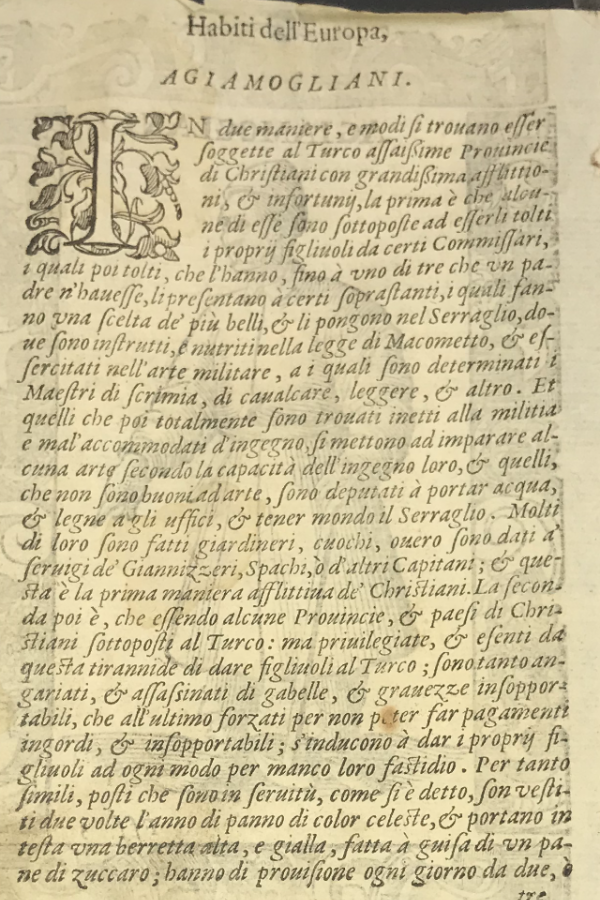 Habiti dell'Europa,
AGIAMOGLIANI.
IN due maniere, e modi si trouano esser
soggette al Turco assaißime Prouincie
di Christiani con grandißima afflittio-
ni, & infortunij, la prima è che alcu-
ne di esse sono sottoposte ad esserli tolti
i proprij figliuoli da certi Commissari,
i quali poi tolti, che l'hanno, fino à vno di tre che vn pa-
dre n'hauesse, li presentano à certi soprastanti, i quali fan-
no vna scelta de' più belli, & li pongono nel Serraglio, do-
ue sono instrutti, e nutriti nella legge di Macometto, & es-
sercitati nell'arte militare, a i quali sono determinati i
Maestri di scrimia, di caualcare, leggere, & altro. Et
quelli che poi totalmente sono trouati inetti alla militia
e mal'accommodati d'ingegno, si mettono ad imparare al-
cuna arte secondo la capacità dell'ingegno loro, & quelli,
che non sono buoni ad arte, sono deputati à portar acqua,
& legne a gli uffici, & tener mondo il Serraglio. Molti
di loro sono fatti giardineri, cuochi, ouero sono dati a'
seruigi de' Giannizzeri, Spachi, ò d'altri Capitani; & que-
sta è la prima maniera afflittiua de' Christiani. La secon-
da poi è, che essendo alcune Prouincie, & paesi di Chri-
stiani sottoposti al Turco: ma priuilegiate, & esenti da
questa tirannide di dare figliuoli al Turco; sono tanto an-
gariati, & assassinati di gabelle, & grauezze insoppor-
tabili, che all'ultimo forzati per non poter far pagamenti
ingordi, & insopportabili; s'inducono à dar i proprij fi-
gliuoli ad ogni modo per manco loro fastidio. Per tanto
simili, posti che sono in seruitù, come si è detto, son vesti-
ti due volte l'anno di panno di color celeste, & portano in
testa vna berretta alta, e gialla, fatta à guisa di vn pa-
ne di zuccaro; hanno di prouisione ogni giorno da due, ò
tre